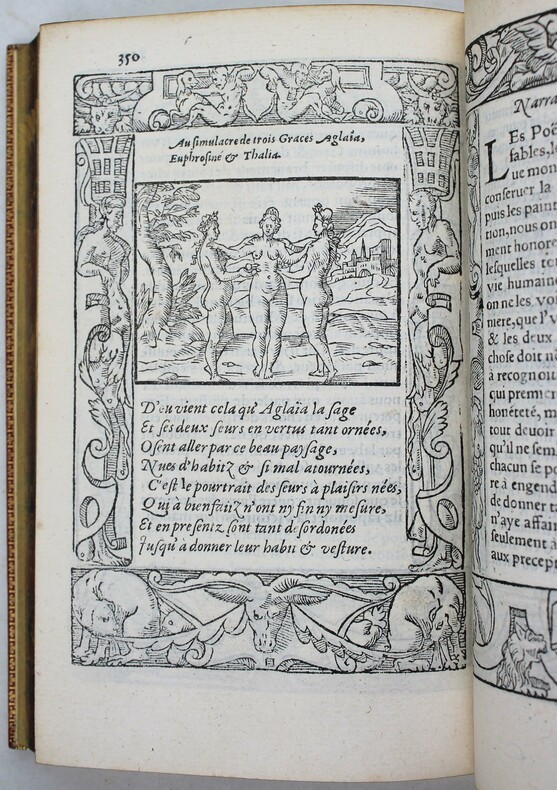 350
Au simulacre de trois Graces Aglaïa,
Euphrosiné & Thalia.
D'ou vient cela qu'Aglaïa la sage
Et ses deux seurs en vertus tant ornées,
Osent aller par ce beau paysage,
Nues d'habitz & si mal atournées,
C'est le pourtrait des seurs à plaisirs nées,
Qui à bienfaitz n'ont ny fin ny mesure,
Et en presentz sont tant desordonées
Jusqu'à donner leur habit & vesture.
Narra
LEs Poë
fables, le
ue mon
conseruer la
puis les paint
tion, nous on
ment honor
lesquelles ten
vie humain
on ne les vo
niere, que l'v
& les deux
chose doit n
à recognou
qui premier
honéteté, n
tout deuoir
qu'il ne sem
chacun se po
re à engend
de donner ta
n'aye affan
seulement à
aux precept